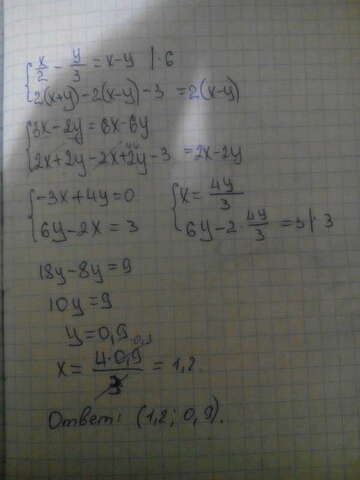 x/2 - y/3 = x-y |·6
2(x+y)-2(x-y)-3 =2(x-y)
3x-2y=6x-6y
2x+2y-2x+2y-3 =2x-2y
-3x+4y=0
6y-2x=3
x= 4y/3
6y-2·4y/3 =3|·3
18y-8y=9
10y=9
y=0,9
x= 4·0,9/3 = 1,2
Ответ: (1,2; 0,9).